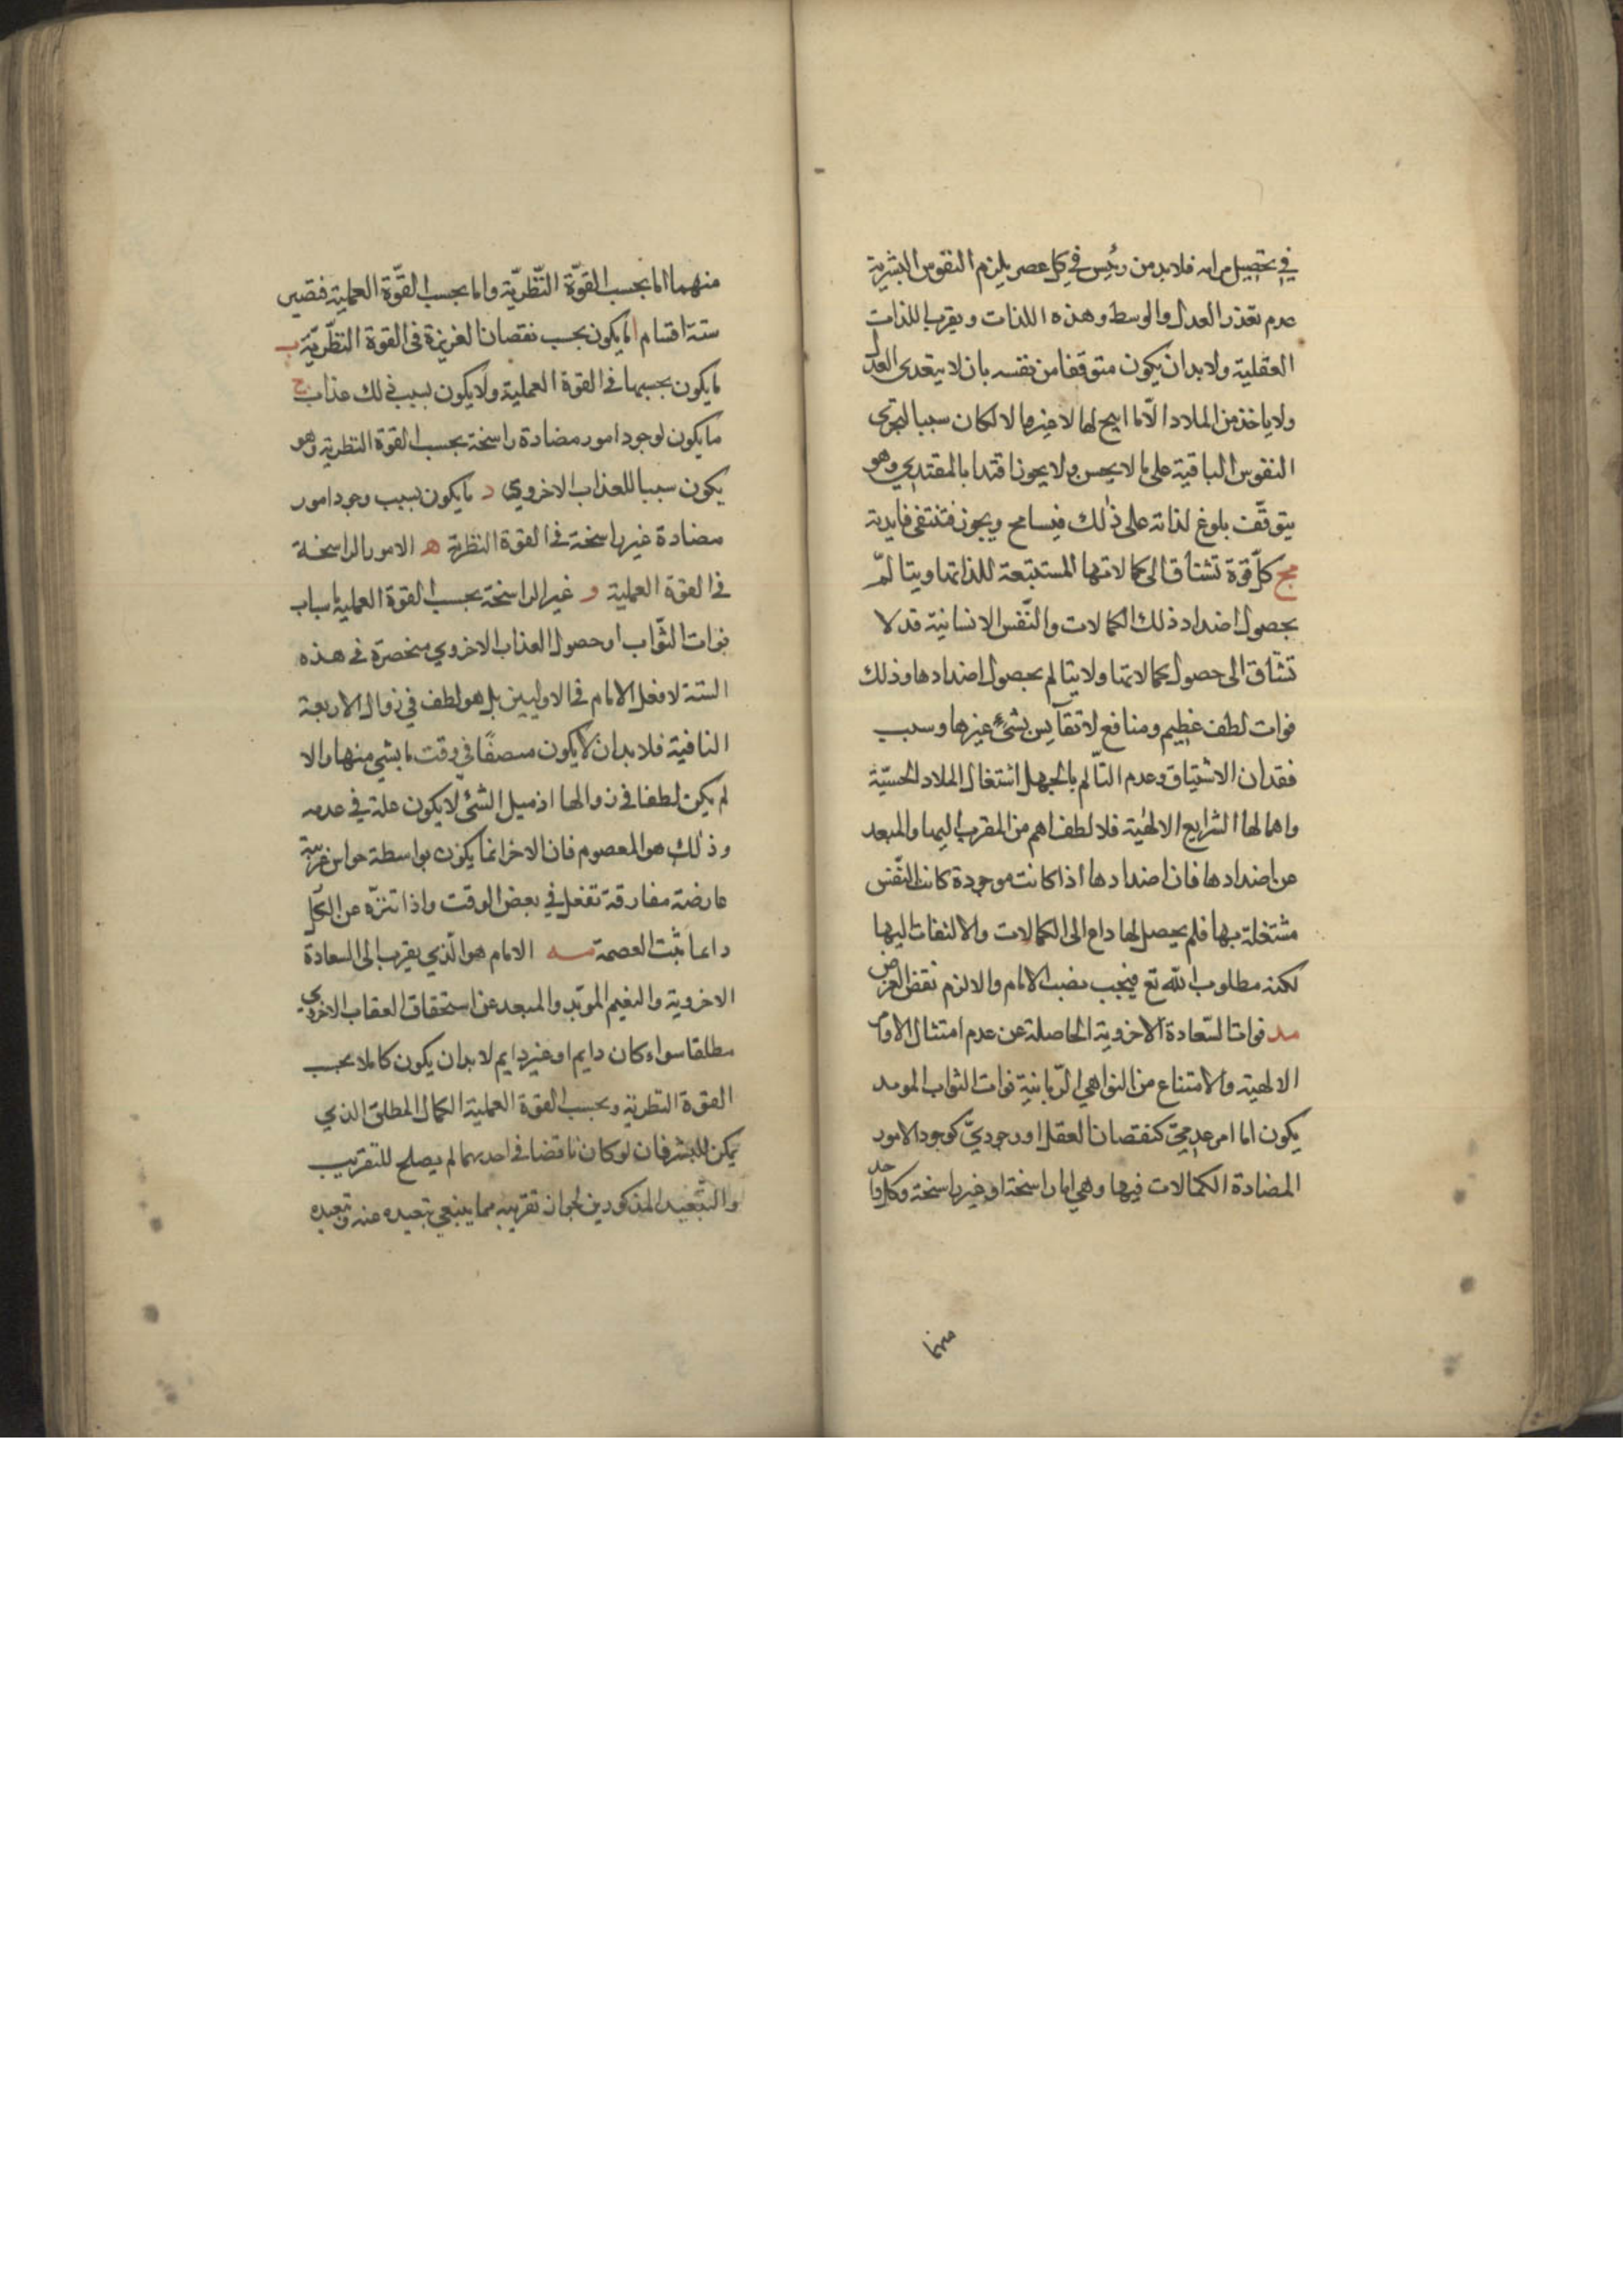 في تحصيل مرامه فلا بد من رئيس في كل عصر يلزم النفوس البشرية
عدم تعذر العدل والوسط وهذه اللذات ويقرب اللذات
العقلية ولا بد ان يكون متوقفا من نفسه بان لا يتعدى العدل
ولا ياخذ من الملاد الا ما ابيح لها لا غيرها والا لكان سببا لتجرى
النفوس الباقية على ما لا يحسن ولا يجوز اقتدا بالمقتدى وهو
يتوقف بلوغ لذاته على ذلك فيسامح ويجوز فتنتفى فايدته
مج كل قوة تشتاق الى كمالاتها المستتبعة للذاتها ويتالم
بحصول اضداد ذلك الكمالات والنفس الانسانية قد لا
تشتاق الى حصول كمالاتها ولا يتالم بحصول اضدادها وذلك
فوات لطف عظيم ومنافع لا تقايس بشئ غيرها وسبب
فقدان الاشتياق وعدم التالم بالجهل اشتغال الملاد الحسية
واهمالها الشرايع الالهية فلا لطف اهم من المقرب اليها والمبعد
عن اضدادها فان اضدادها اذا كانت موجودة كانت النفس
مشتغلة بها فلم يحصل لها داع الى الكمالات والالتفات اليها
لكنه مطلوب الله تع فيجب نصب الامام والا لزم نقض الغرض
مد فوات السعادة الاخروية الحاصلة عن عدم امتثال الاوامر
الالهية والامتناع من النواهي الربانية فوات الثواب الموبد
يكون اما امر عدمي كنقصان العقل او وجودي كوجود الامور
المضادة الكمالات فيها وهي اما راسخة او غير راسخة وكل واحد
منهما
منهما اما بحسب القوة النظرية واما بحسب القوة العملية فتصير
ستة اقسام ا ما يكون بحسب نقصان الغريزة فى القوة النظرية ب
ما يكون بحسبها فى القوة العملية ولا يكون بسبب ذلك عذاب ج
ما يكون لوجود امور مضادة راسخة بحسب القوة النظرية وهو
يكون سببا للعذاب الاخروي د ما يكون بسبب وجود امور
مضادة غير راسخة فى القوة النظرية ه الامور الراسخة
فى القوة العملية و غير الراسخة بحسب القوة العملية باسباب
فوات الثواب او حصول العذاب الاخروي منحصرة فى هذه
الستة لا فعل الامام فى الاوليين بل هو لطف في زوال الاربعة
الباقية فلا بد ان لا يكون متصفا في وقت ما بشي منها والا
لم يكن لطفا فى زوالها اذ ميل الشئ لا يكون علة في عدمه
وذلك هو المعصوم فان الاخر انما يكون بواسطة حواس غريبة
عارضة مفارقة تفعل في بعض الوقت واذا تنزه عن الكل
داعا ثبت العصمة مه الامام هو الذي يقرب الى السعادة
الاخروية والنعيم الموبد والمبعد عن استحقاق العقاب الاخروي
مطلقا سواء كان دايم او غير دايم لا بد ان يكون كاملا بحسب
القوة النظرية وبحسب القوة العملية الكمال المطلق الذي
يمكن للبشر فان لو كان ناقصا فى احديهما لم يصلح للتقريب
والتبعيد المذكورين لجواز تقريبه مما ينبغي تبعيده عنه وتبعيده